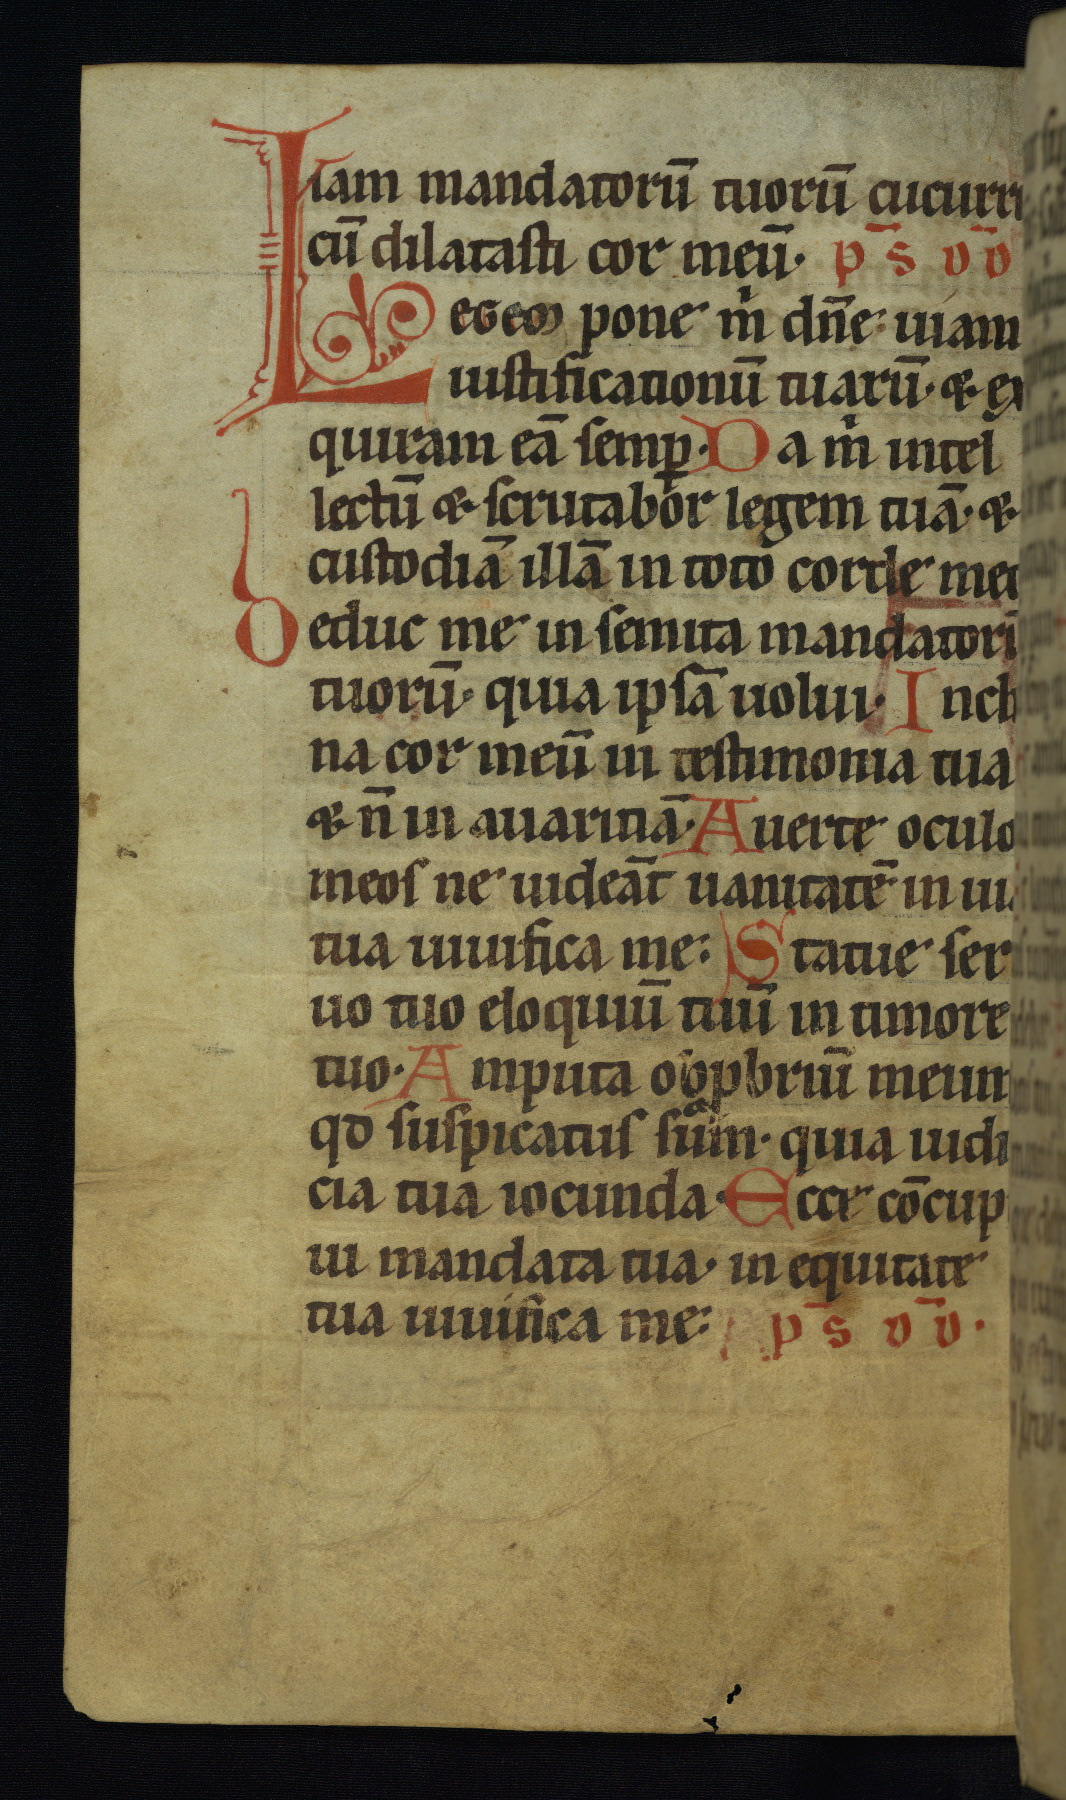 iam mandatorū tuorū cucurri
cū dilatasti cor meū. p̄s v̄v
Legem pone m̍ dn̄e: uiam
iustificationū tuarū. & ex
quiram eā semꝑ. Da m̍ intel
lectū & scrutabor legem tuā. &
custodiā illā in toto corde meo
Deduc me in semita mandatorū
tuorū. quia ipsā uolui. Incli
na cor meū in testimonia tua
& n̄ in auaritiā. Auerte oculo
meos ne uideāt uanitatē in uia
tua uiuifica me: Statue ser
uo tuo eloquiū tuū in timore
tuo. Amputa obpbriū meum
qd suspicatus sum. quia iudi
cia tua iocunda. Ecce cōcup
iui mandata tua. in equitate
tua uiuifica me: p̄s v̄v.